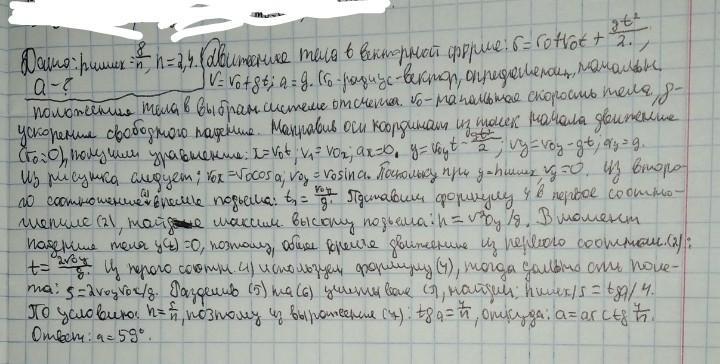 Дано: hmax = 8/n, n=2,4. Движение тела в векторной форме: r = r0 + v0t + gt²/2.;
a - ? v = v0 + gt; a = g. (r0 - радиус-вектор, определяющ. начальн.
положение тела в выбран. системе отсчета. v0 - начальное скорость тела, g-
ускорение свободного падение. Направив оси координат из точек начала движение
(r0=0), получим уравнение: x = v0t; v1 = v0x; ax=0. y = v0yt - gt²/2; vy = v0y - gt; ay = g.
Из рисунка следует: v0x = v0cosa, v0y = v0sina. Поскольку при y=hmax vy=0. Из второ-
го соотношение время подъема: t1 = v0y/g. Подставим формулу 4 в первое соотно-
шение (2), максим высоту подъема: h = v²0y/g. В момент
падение тела y(t)=0, поэтому, общее время движение из первого соотнош. (2):
t = 2v0y/g. Из перого соотн. (1) используем формулу (4), тогда дальность поле-
та: s = 2v0yv0x/g. Разделив (5) на (6) учитывая (3), найдём: hmax/s = tga/4.
По условию: поэтому из выражение (7): tga = откуда: a = arctg
Ответ: a=59°.